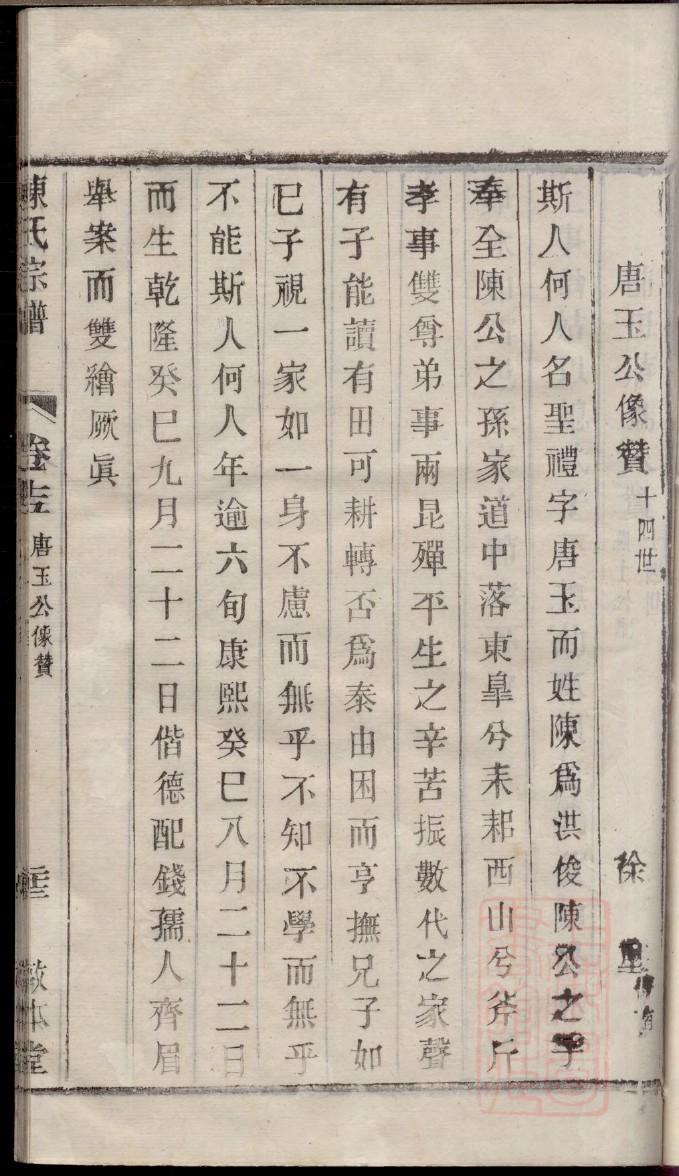 唐玉公像贊 十四世 徐 星
斯人何人名聖禮字唐玉而姓陳爲洪俊陳公之子
奉全陳公之孫家道中落東臯兮耒耜西山兮斧斤
孝事雙尊弟事兩昆殫平生之辛苦振數代之家聲
有子能讀有田可耕轉否爲泰由困而亨撫兄子如
已子視一家如一身不慮而無乎不知不學而無乎
不能斯人何人年逾六旬康熙癸巳八月二十二日
而生乾隆癸巳九月二十二日偕德配錢孺人齊眉
舉案而雙繪厥眞
陳氏宗譜 唐玉公像贊 敦本堂